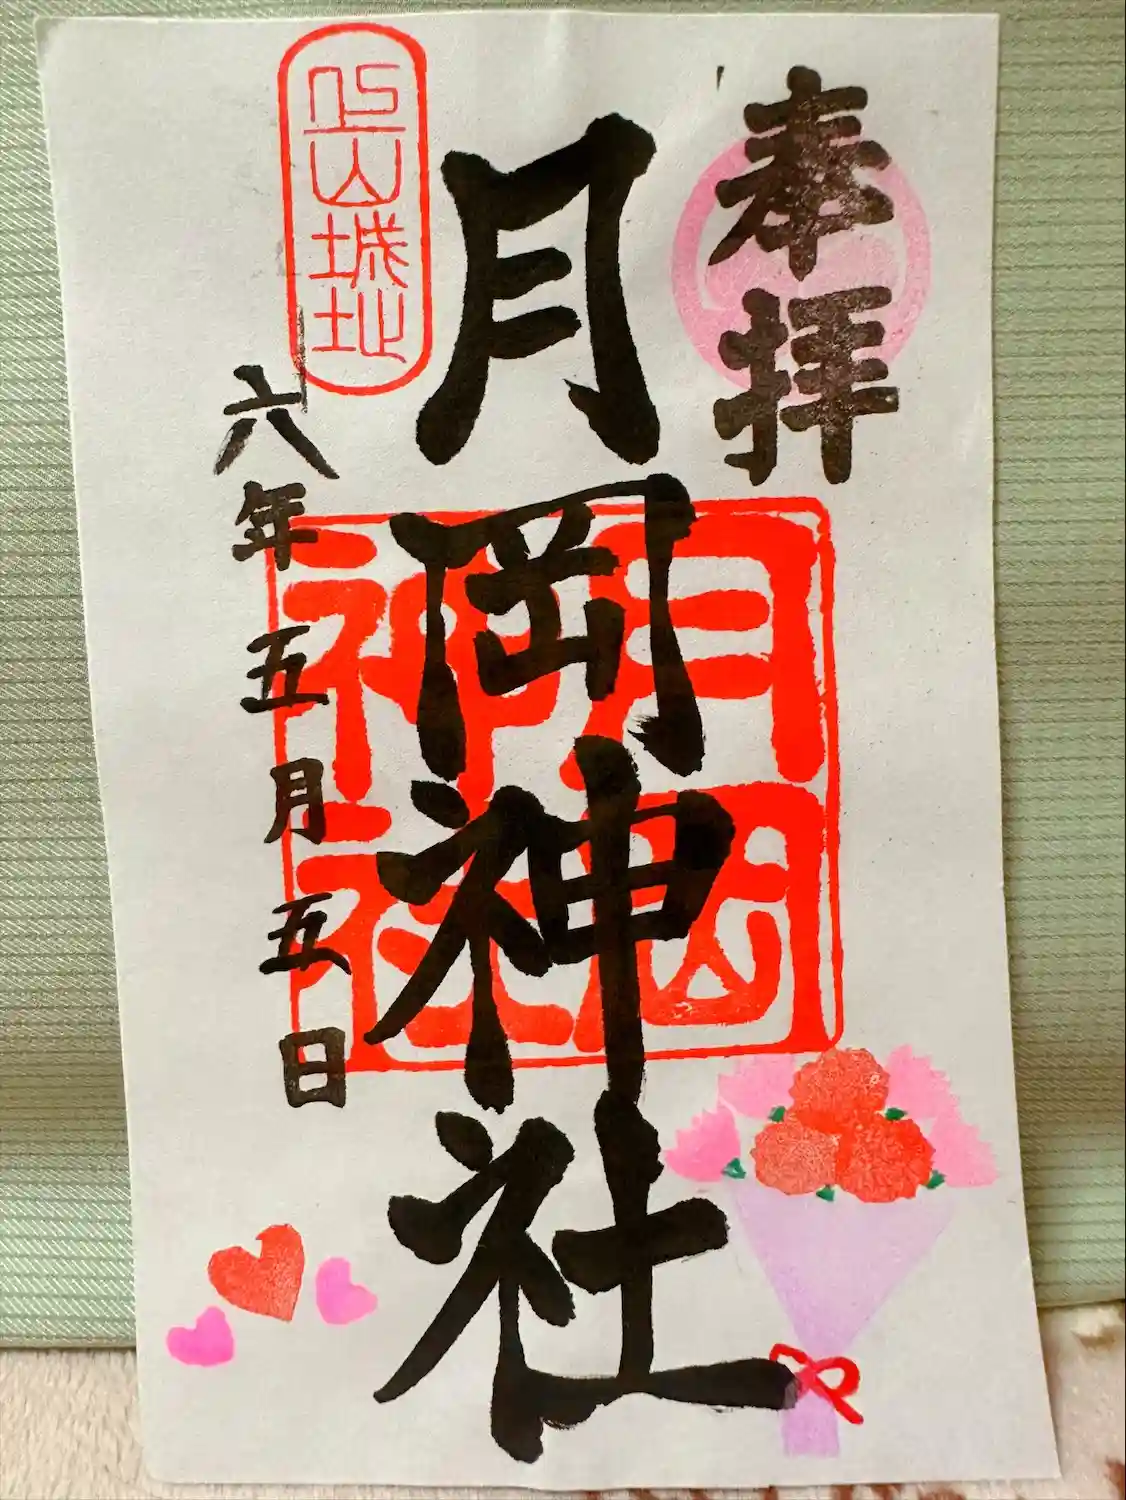 奉拝
月岡神社
月岡神社
山城址
六年五月五日